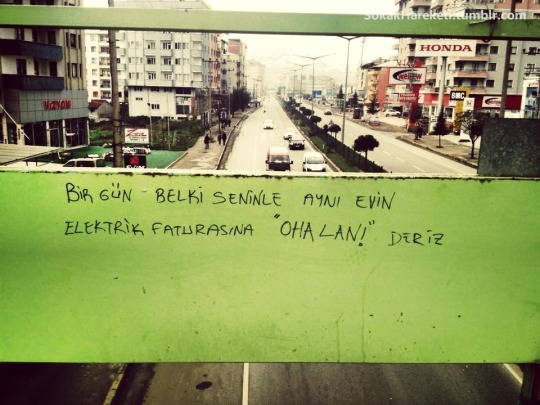 SokakHareketi.tumblr.com
HONDA
VİZYON
BMC
BİR GÜN BELKİ SENİNLE AYNI EVİN
ELEKTRİK FATURASINA "OHA LAN!" DERİZ